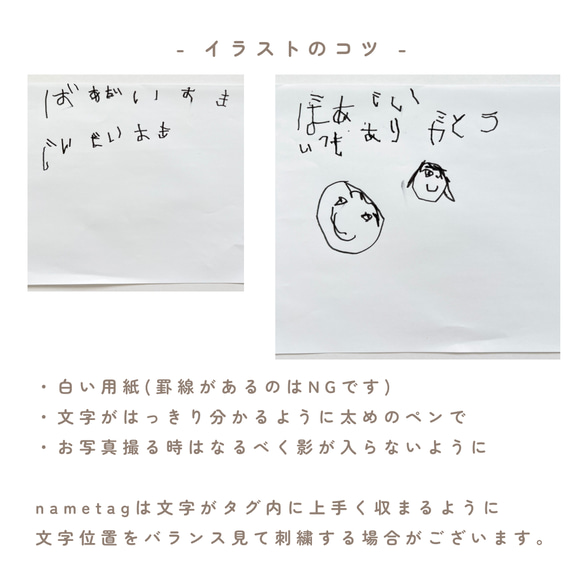 - イラストのコツ -
ばあばだいすき
じいじだいすき
ばあば じいじ
いつも ありがとう
・白い用紙(罫線があるのはNGです)
・文字がはっきり分かるように太めのペンで
・お写真撮る時はなるべく影が入らないように
nametagは文字がタグ内に上手く収まるように
文字位置をバランス見て刺繍する場合がございます。